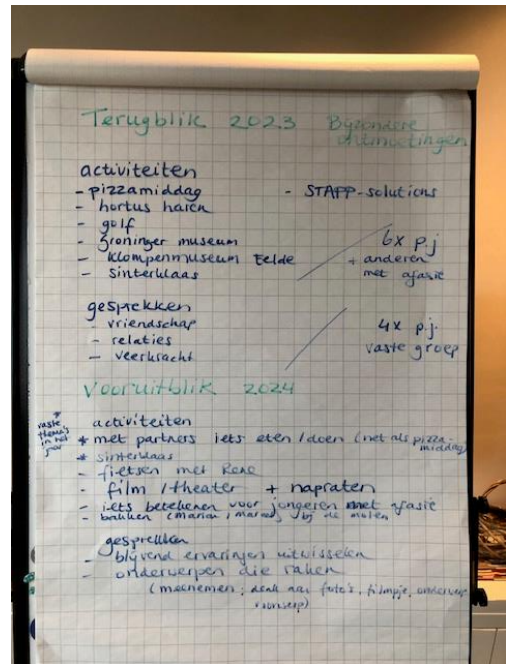 Terugblik 2023 Byzondere ontmoetingen
activiteiten
- pizzamiddag - STAPP-solutions
- hortus haren
- golf
- Groninger museum 6x p.j
- klompenmuseum Eelde + anderen
- Sinterklaas met afasie
gesprekken
- vriendschap 4x p.j.
- relaties vaste groep
- veerkracht
Vooruitblik 2024
vaste thema's in het jaar
activiteiten
* met partners iets eten / doen (net als pizza-middag)
* sinterklaas
- fietsen met Rene
- film / theater + napraten
- iets betekenen voor jongeren met afasie
- bakken ( bij de molen
gesprekken
- blijvend ervaringen uitwisselen
- onderwerpen die raken
(meenemen; denk aan foto's, filmpje, onderwerp